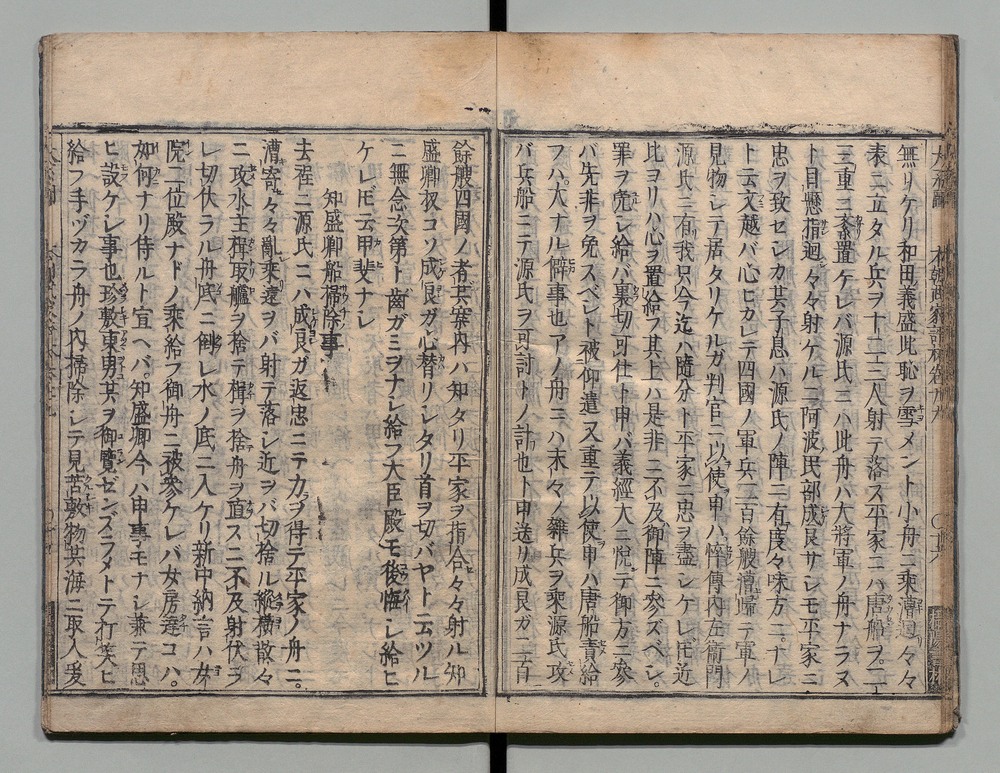 無リケリ和田義盛此恥ヲ雪メント小舟ニ乗漕廻々々
表ニ立タル兵ヲ十二三人射テ落ス平家ニハ唐船ヲ二
三重ニ番置ケレバ源氏ニハ此舟ハ大將軍ノ舟ナラヌ
ト目懸指廻々々射ケル二阿波民部成良サレモ平家ニ
忠ヲ致セシカ其子息ハ源氏ノ陣ニ有度々味方ニ。ナレ
ト云又越バ心ヒカレテ四國ノ軍兵三百餘艘漕歸テ軍ハ
見物シテ居タリケルガ判官ニ以使申ハ悴傳内左衛門
源氏ニ有我只今迄ハ隨分ト平家ニ忠ヲ盡シケレ𪜈近
比ヨリハ心ヲ置給フ其上ハ是非ニ不及御陣ニ參ズベシ。
罪ヲ免シ給バ裏切可仕ト申バ義經大ニ悦テ御方ニ參
バ先非ヲ免スベシト被仰遣又重テ以使申ハ唐船責給
フハ。大ナル僻事也アノ舟ニハ末々ノ雑兵ヲ乗源氏攻
バ兵船ニテ源氏ヲ可討トノ計也ト申送リ成良ガ三百
餘艘四國ノ者共寨内ハ知タリ平家ヲ指合々々射ル知
盛卿扨コソ成良ガ心替リシタリ首ヲ切バヤト云ツル
ニ無念次第ト齒ガミヲナシ給フ大臣殿モ後悔シ給ヒ
ケレ𪜈云甲斐ナシ
知盛卿船掃除事
去程ニ源氏ニハ成良ガ返忠ニテ力ヲ得テ平家ノ舟ニ。
漕寄々々亂乗遠ヲバ射テ落シ近ヲバ切捨ル縱横散々
ニ攻水主梶取艫ヲ捨テ楫ヲ捨舟ヲ直スニ不及射伏ラ
レ切伏ラル舟底ニ倒レ水ノ底ニ入ケリ新中納言ハ女
院二位殿ナドノ乗給フ御舟ニ被參ケレバ女房達コハ。
如何ナリ侍ルト宣ヘバ知盛卿今ハ申事モナシ兼テ思
ヒ設ケシ事也珍敷東男共ヲ御覽ゼンズラメトテ打笑ヒ
給フ手ヅカラ舟ノ内掃除シテ見苦敷物共海ニ取入爰